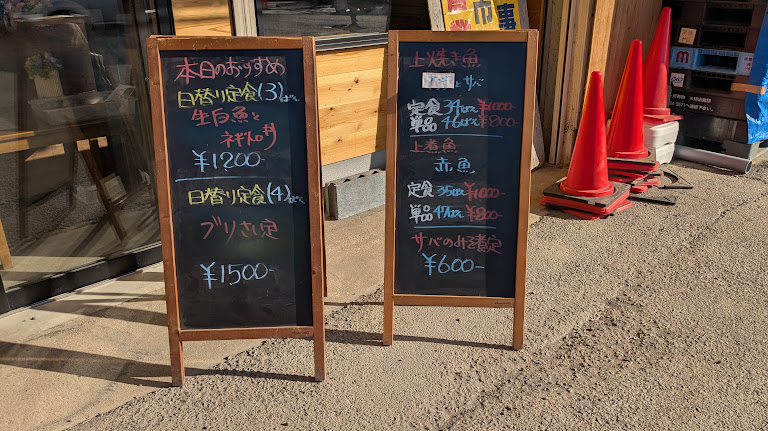 本日のおすすめ
日替り定食(3)
生白魚と
ネギトロ丼
¥1200-
日替り定食(4)
ブリさし定
¥1500-
上焼き魚
とサバ
定食 34ばん ¥1000-
単品 46ばん ¥800-
上煮魚
赤魚
定食 35ばん ¥1000-
単品 47ばん ¥800-
サバのみそ煮定
¥600-
市事
m